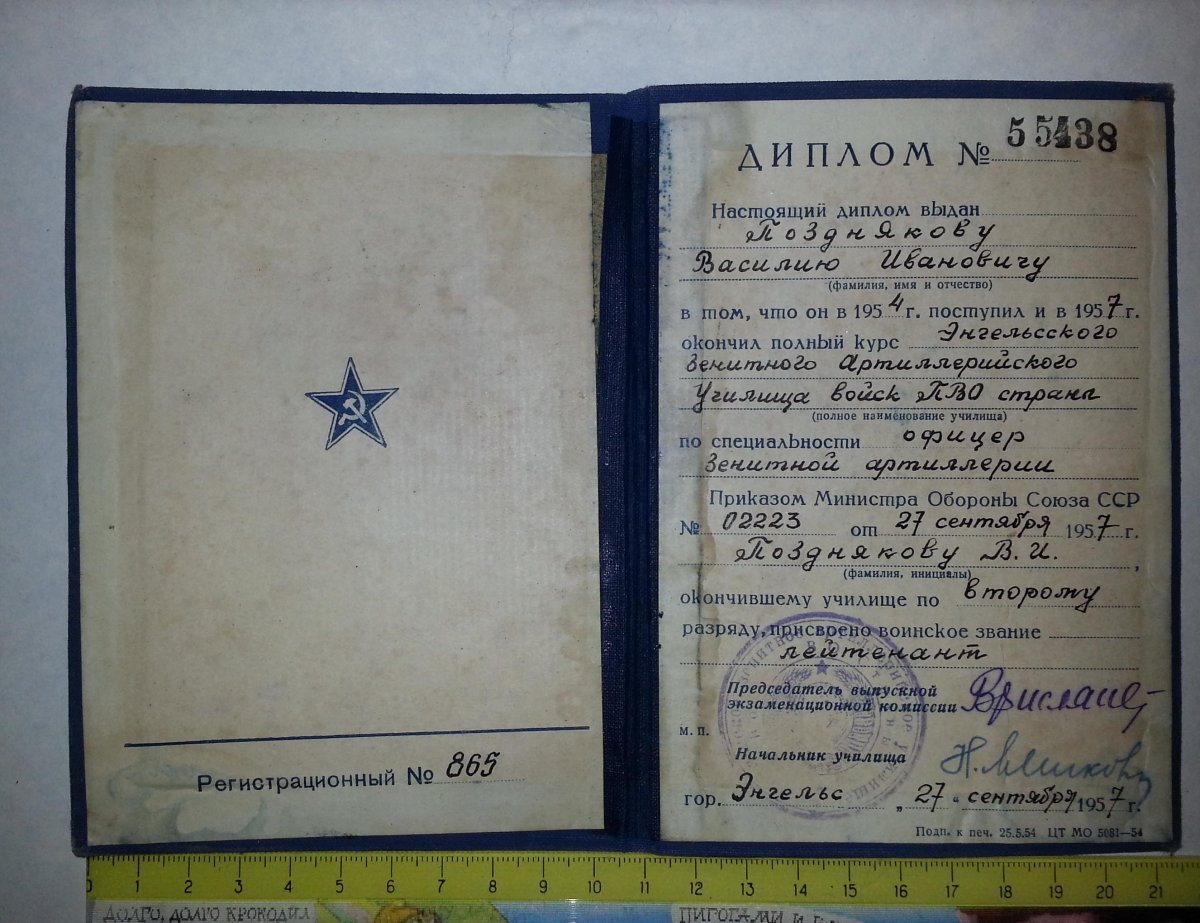 Регистрационный № 865
ДИПЛОМ № 55438
Настоящий диплом выдан
Позднякову
Василию Ивановичу
(фамилия, имя и отчество)
в том, что он в 1954 г. поступил и в 1957 г.
окончил полный курс Энгельсского
Зенитного Артиллерийского
Училища войск ПВО страны
(полное наименование училища)
по специальности офицер
зенитной артиллерии
Приказом Министра Обороны Союза ССР
№ 02223 от 27 сентября 1957 г.
Позднякову В. И.,
(фамилия, инициалы)
окончившему училище по второму
разряду, присвоено воинское звание
лейтенант
Председатель выпускной
экзаменационной комиссии
м. п.
Начальник училища
гор. Энгельс „27“ сентября 1957 г.
Подп. к печ. 25.5.54 ЦТ МО 5081—54
0 1 2 3 4 5 6 7 8 9 10 11 12 13 14 15 16 17 18 19 20 21
ДОЛГО, ДОЛГО КРОКОДИЛ
ПИРОГАМИ И